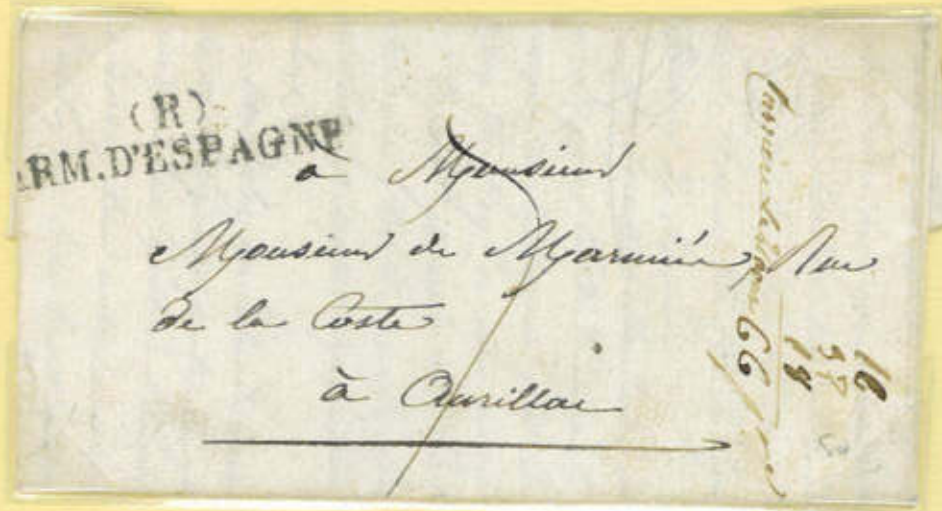 (R)
ARM. D'ESPAGNE
à Monsieur
Monsieur de Marmiés, Rue
de la Coste
à Aurillac
16
32
18
66